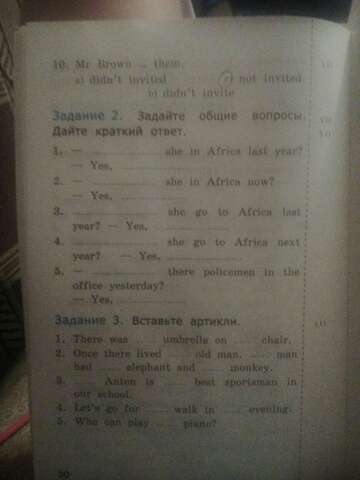 10. Mr Brown ... them.
a) didn't invited c) not invited
b) didn't invite
Задание 2. Задайте общие вопросы.
Дайте краткий ответ.
1. — ............ she in Africa last year?
— Yes, ............
2. — ............ she in Africa now?
— Yes, ............
3. ............ she go to Africa last
year? — Yes, ............
4. ............ she go to Africa next
year? — Yes, ............
5. — ............ there policemen in the
office yesterday?
— Yes, ............
Задание 3. Вставьте артикли.
1. There was ...... umbrella on ...... chair.
2. Once there lived ...... old man. ...... man
had ...... elephant and ...... monkey.
3. ...... Anton is ...... best sportsman in
our school.
4. Let's go for ...... walk in ...... evening.
5. Who can play ...... piano?
50